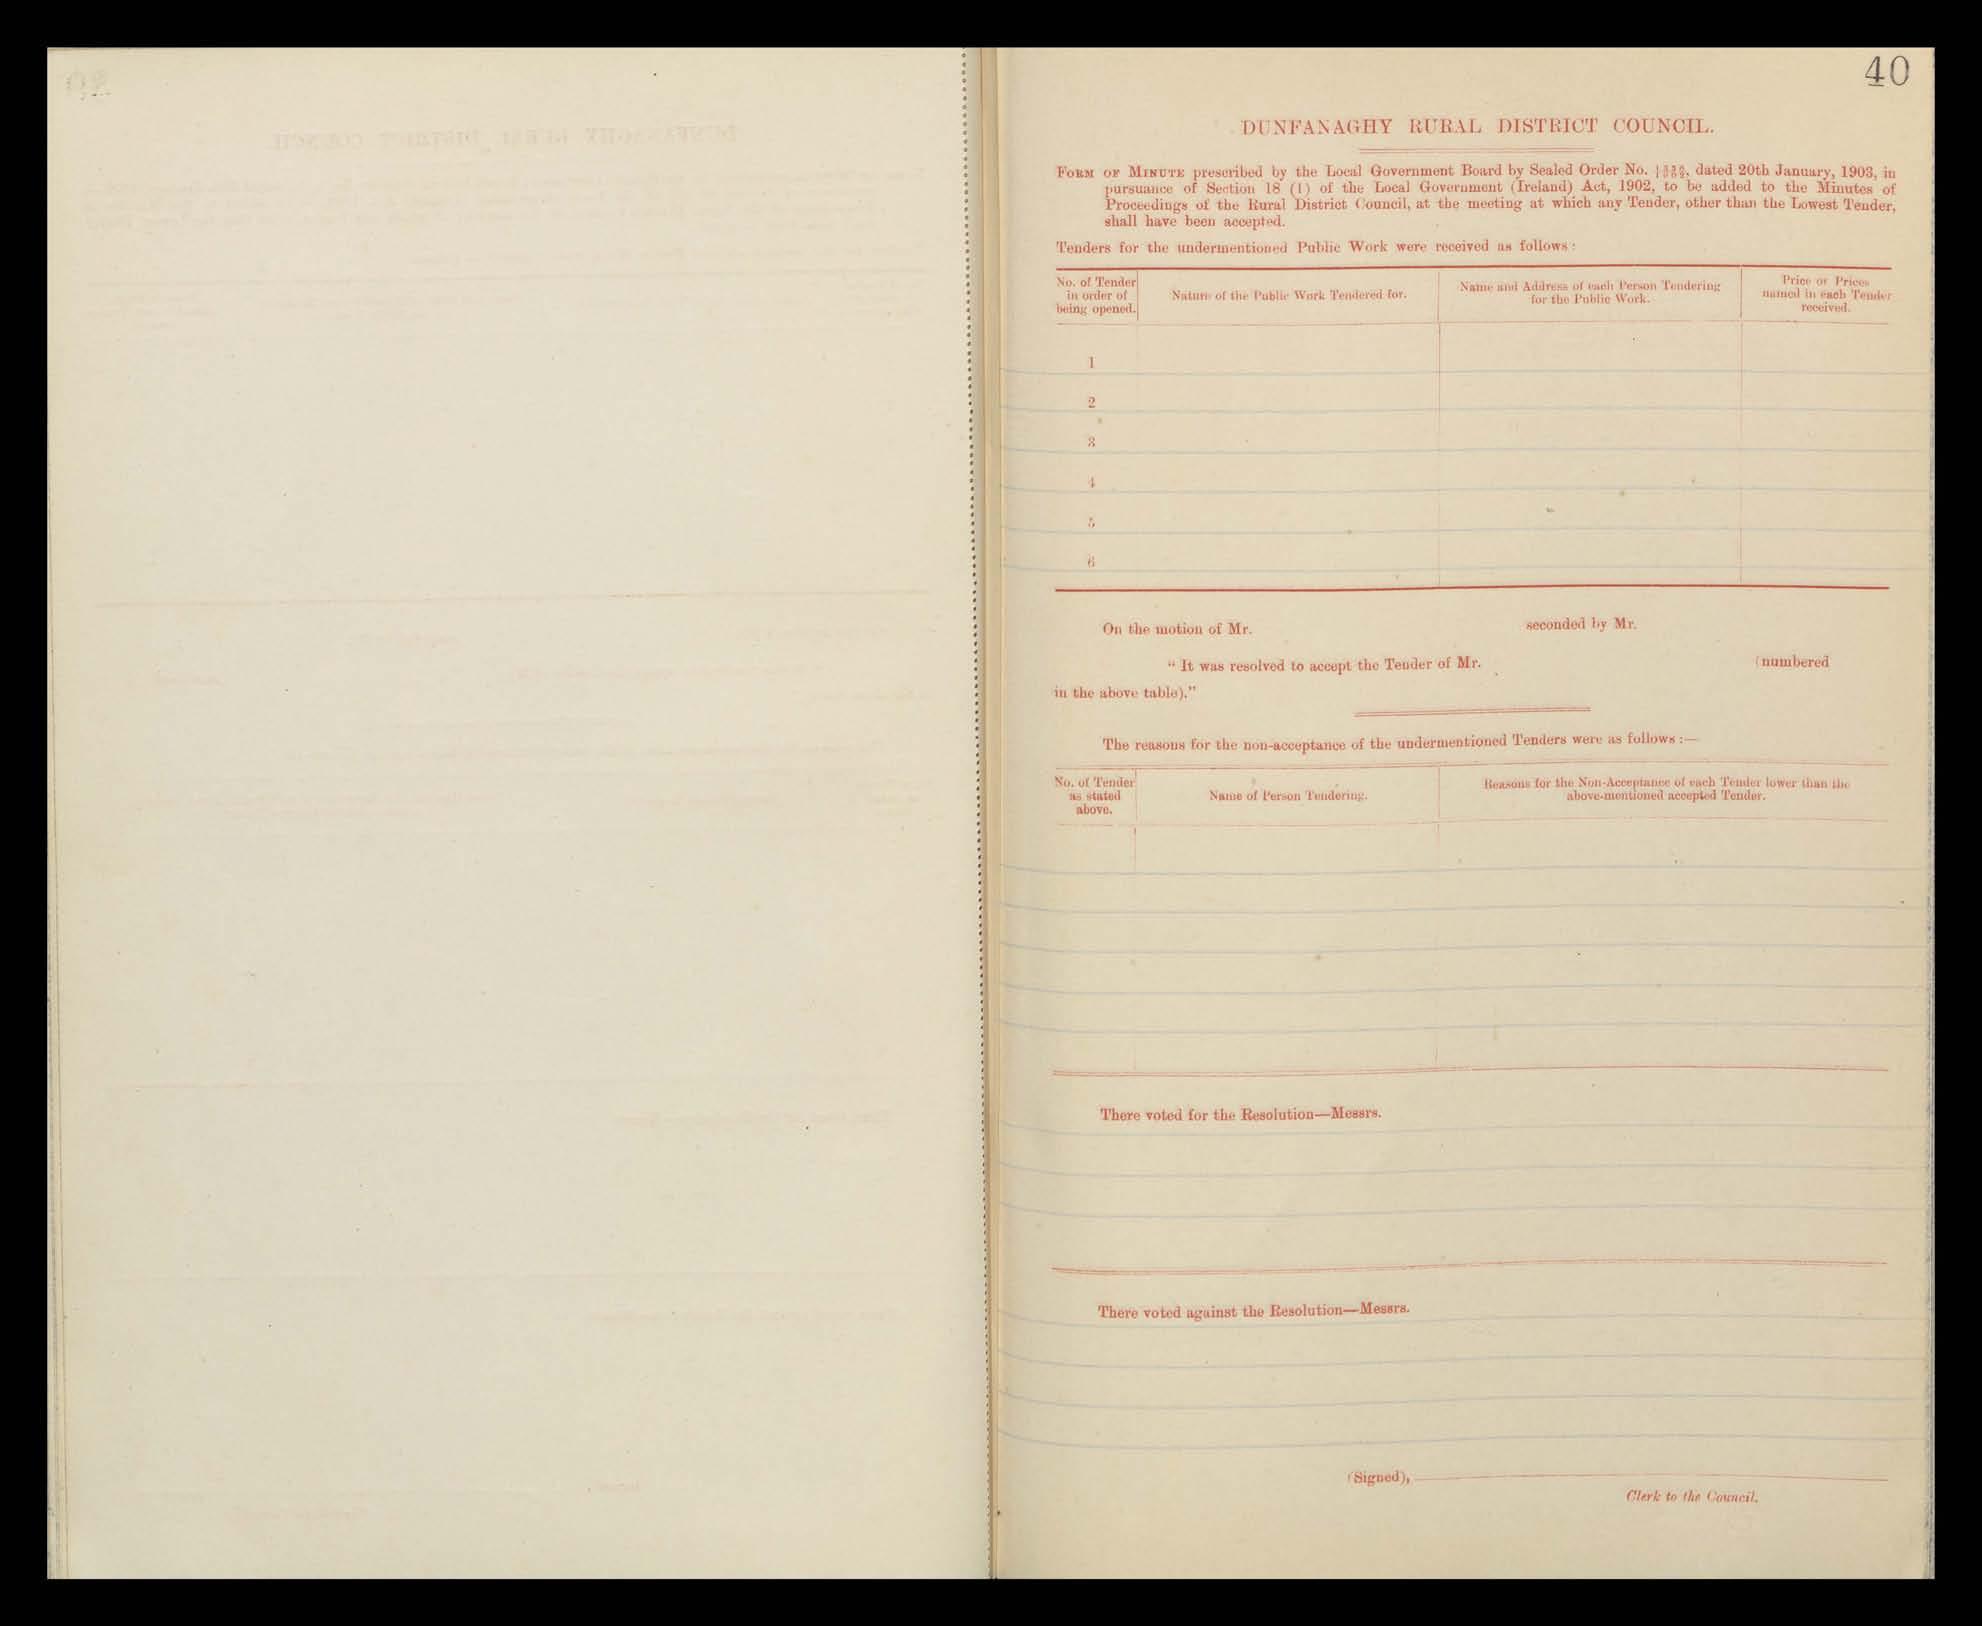 40
DUNFANAGHY RURAL DISTRICT COUNCIL.
FORM OF MINUTE prescribed by the Local Government Board by Sealed Order No. , dated 20th January, 1903, in
pursuance of Section 18 (1) of the Local Government (Ireland) Act, 1902, to be added to the Minutes of
Proceedings of the Rural District Council, at the meeting at which any Tender, other than the Lowest Tender,
shall have been accepted.
Tenders for the undermentioned Public Work were received as follows:
No. of Tender
in order of
being opened.
Nature of the Public Work Tendered for.
Name and Address of each Person Tendering
for the Public Work.
Price or Prices
named in each Tender
received.
1
2
3
4
5
6
On the motion of Mr. seconded by Mr.
“It was resolved to accept the Tender of Mr. (numbered
in the above table).”
The reasons for the non-acceptance of the undermentioned Tenders were as follows:—
No. of Tender
as stated
above.
Name of Person Tendering.
Reasons for the Non-Acceptance of each Tender lower than the
above-mentioned accepted Tender.
There voted for the Resolution—Messrs.
There voted against the Resolution—Messrs.
(Signed),
Clerk to the Council.